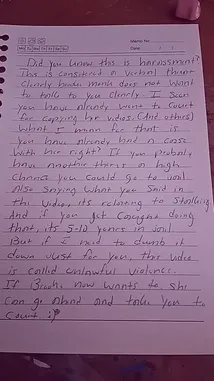 Memo No.
Mo Tu We Th Fr Sa Su
Date
Did you know this is harassment?
This is considered a victom threat
Clearly broken monk does not want
to talk to you Clearly I seen
you have already went to Court
for Copying her videos (And others)
what I mean for that is
you have already had a case
with her right? If you probaly
have another there's a high
Chance you could go to jail
Also saying what you said in
the video, its relating to stalking
And if you get Caught doing
that, its 5-10 years in jail
But if I need to dumb it
down just for you, this video
is called unlawful violence.
If now wants to, she
Can go ahead and take you to
Court :)